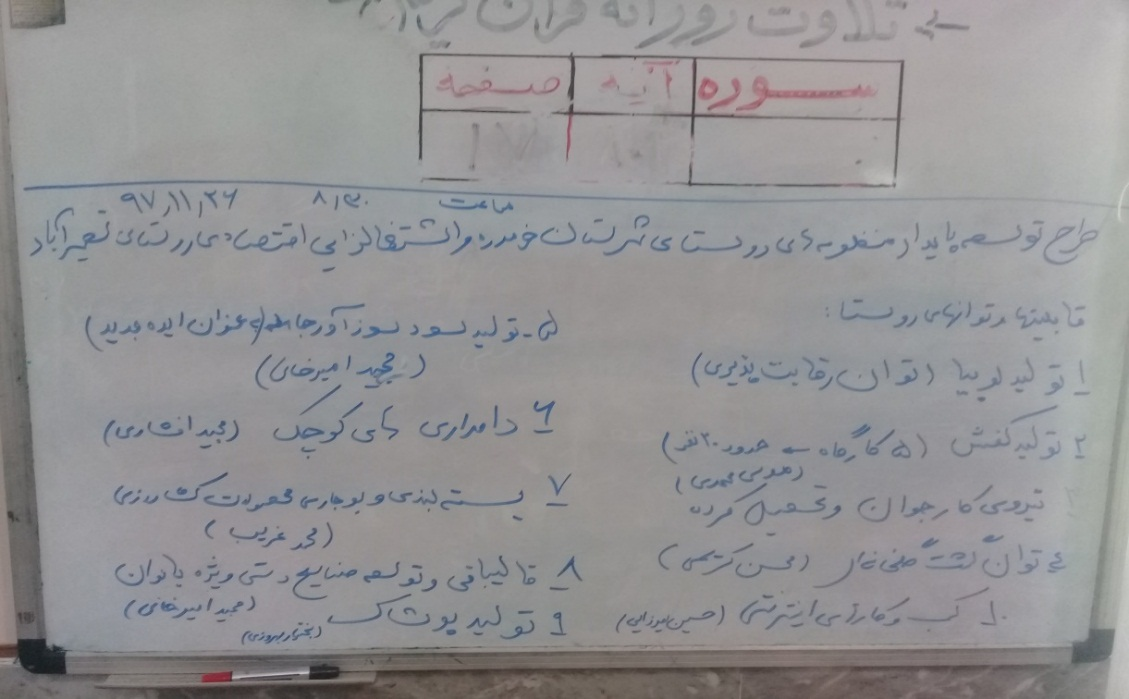 ← تلاوت روزانه قرآن کریم
سوره آیه صفحه
ساعت ۸٫۳۰ ۹۷٫۱۱٫۲۶
طرح توسعه پایدار منظومه های روستای شهرستان خرمدره و اشتغالزایی اقتصادی روستای نصیرآباد
قابلیتها و توانهای روستا:
۱ تولید لوبیا (توان رقابت پذیری)
۲ تولید کفش (۵ کارگاه ← حدود ۲۰ نفر)
(موسی محمدی)
نیروی کار جوان و تحصیل کرده
۴ توان گشت (محسن کریمی)
۱۰ کسب و کارهای اینترنتی (حسین میرزایی)
۵- تولید سود سوزآور جامد (به عنوان ایده جدید)
(مجید امیرخانی)
۶ دامداری های کوچک (مجید افشاری)
۷ بسته بندی و بوجاری محصولات کشاورزی
(محمد غریب)
۸ قالیبافی و توسعه صنایع دستی ویژه بانوان
(مجید امیرخانی)
۹ تولید پوشاک